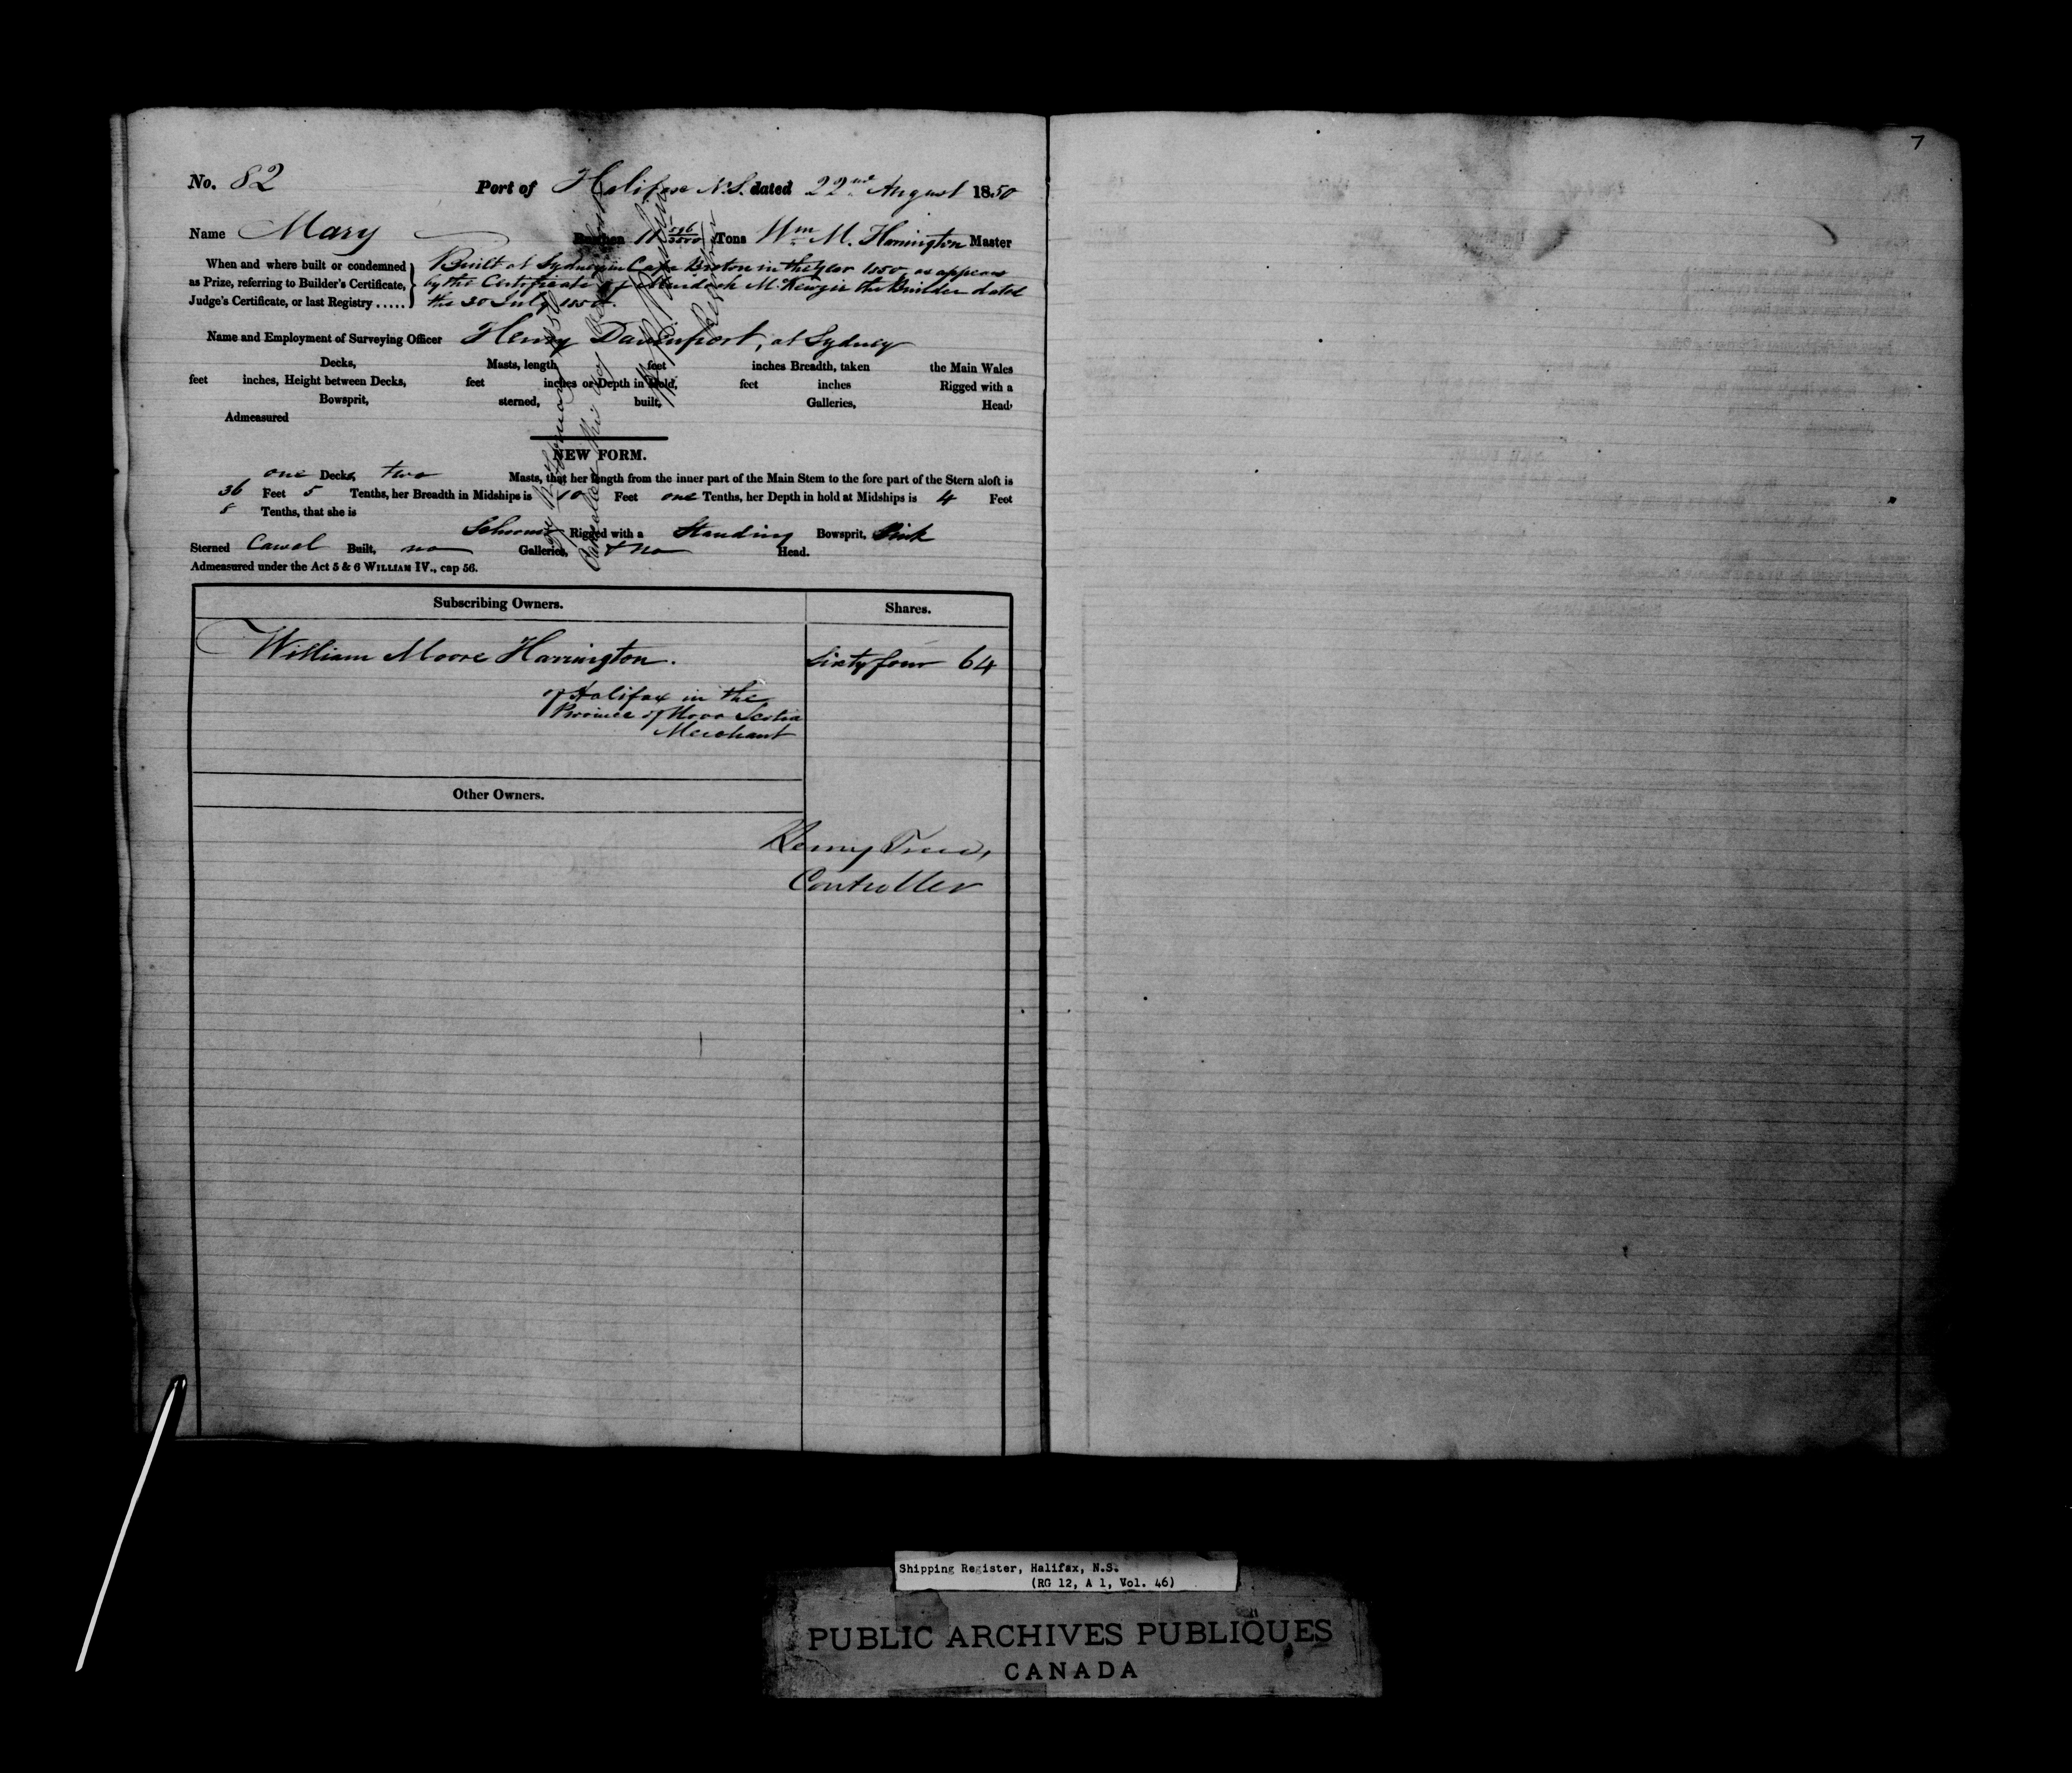 7
No. 82 Port of Halifax N.S. dated 22nd August 1850
Name Mary Burthen 11 Tons Wm M. Harrington Master
When and where built or condemned as Prize, referring to Builder's Certificate, Judge's Certificate, or last Registry .....
Built at Sydney in Cape Breton in the year 1850, as appears
by the Certificate of Murdoch McKenzie the Builder dated
the 30 July 1850.
Name and Employment of Surveying Officer Henry Davenport, at Sydney
Decks, Masts, length feet inches Breadth, taken the Main Wales
feet inches, Height between Decks, feet inches or Depth in Hold, feet inches Rigged with a
Bowsprit, sterned, built, Galleries, Head,
Admeasured
NEW FORM.
one Decks, two Masts, that her length from the inner part of the Main Stem to the fore part of the Stern aloft is
36 Feet 5 Tenths, her Breadth in Midships is 10 Feet one Tenths, her Depth in hold at Midships is 4 Feet
8 Tenths, that she is
Schooner Rigged with a Standing Bowsprit, Pink
Sterned Carvel Built, no Galleries, & no Head.
Admeasured under the Act 5 & 6 WILLIAM IV., cap 56.
Subscribing Owners. Shares.
William Moore Harrington. Sixty four 64
of Halifax in the
Province of Nova Scotia
Merchant
Other Owners.
Henry
Controller
Shipping Register, Halifax, N.S.
(RG 12, A 1, Vol. 46)
PUBLIC ARCHIVES PUBLIQUES
CANADA